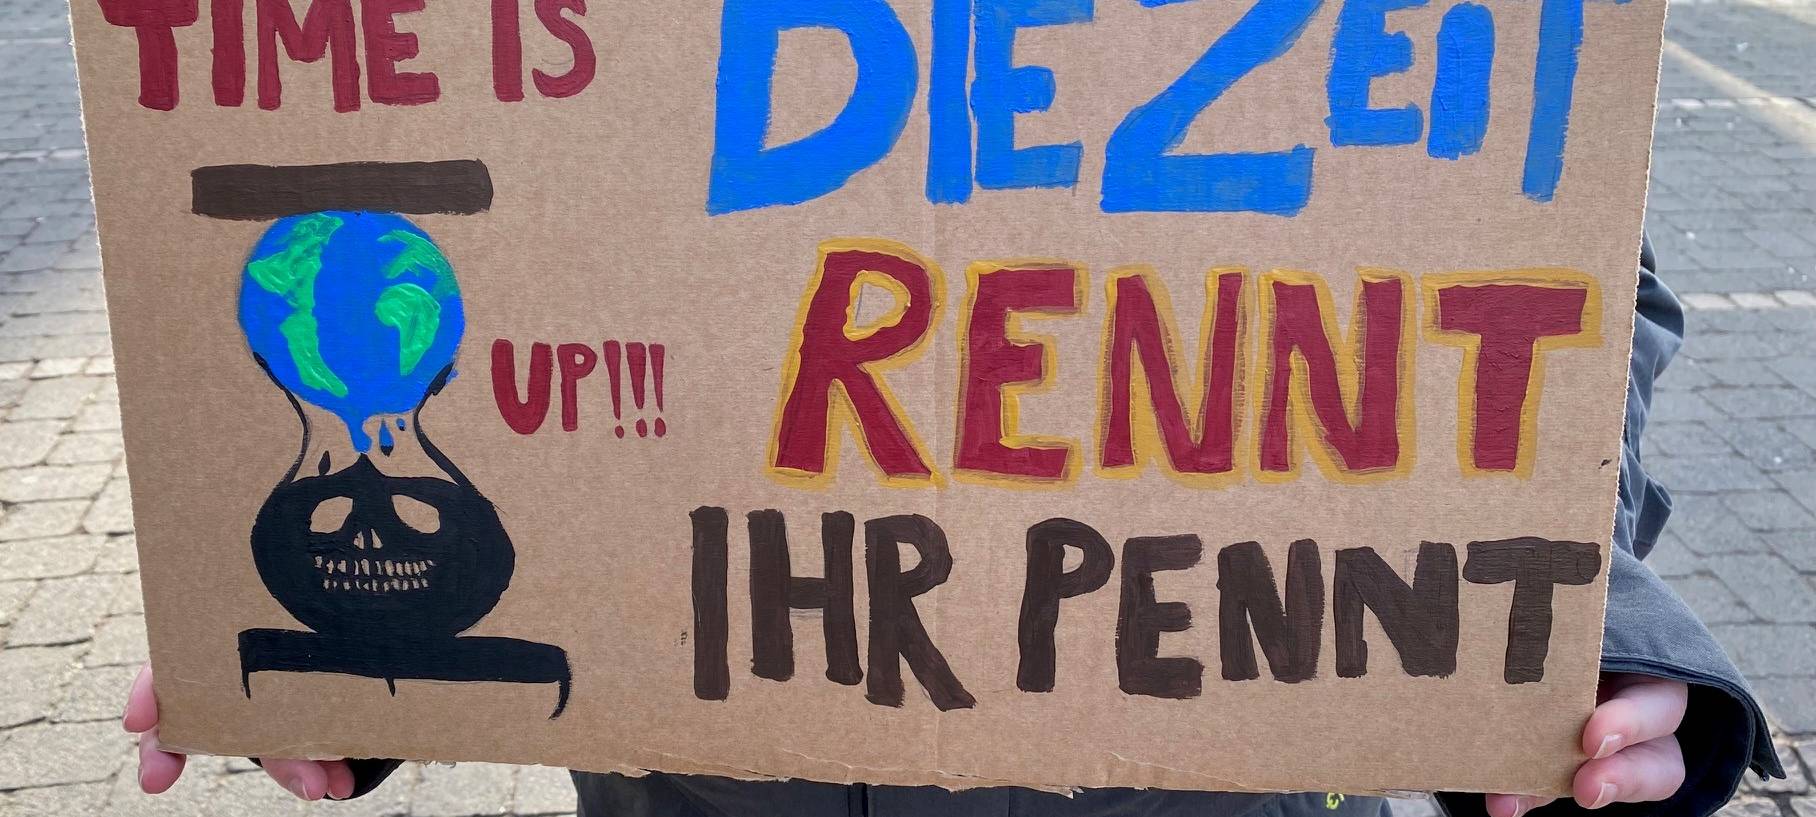 TIME IS
UP!!!
DIE ZEIT
RENNT
IHR PENNT